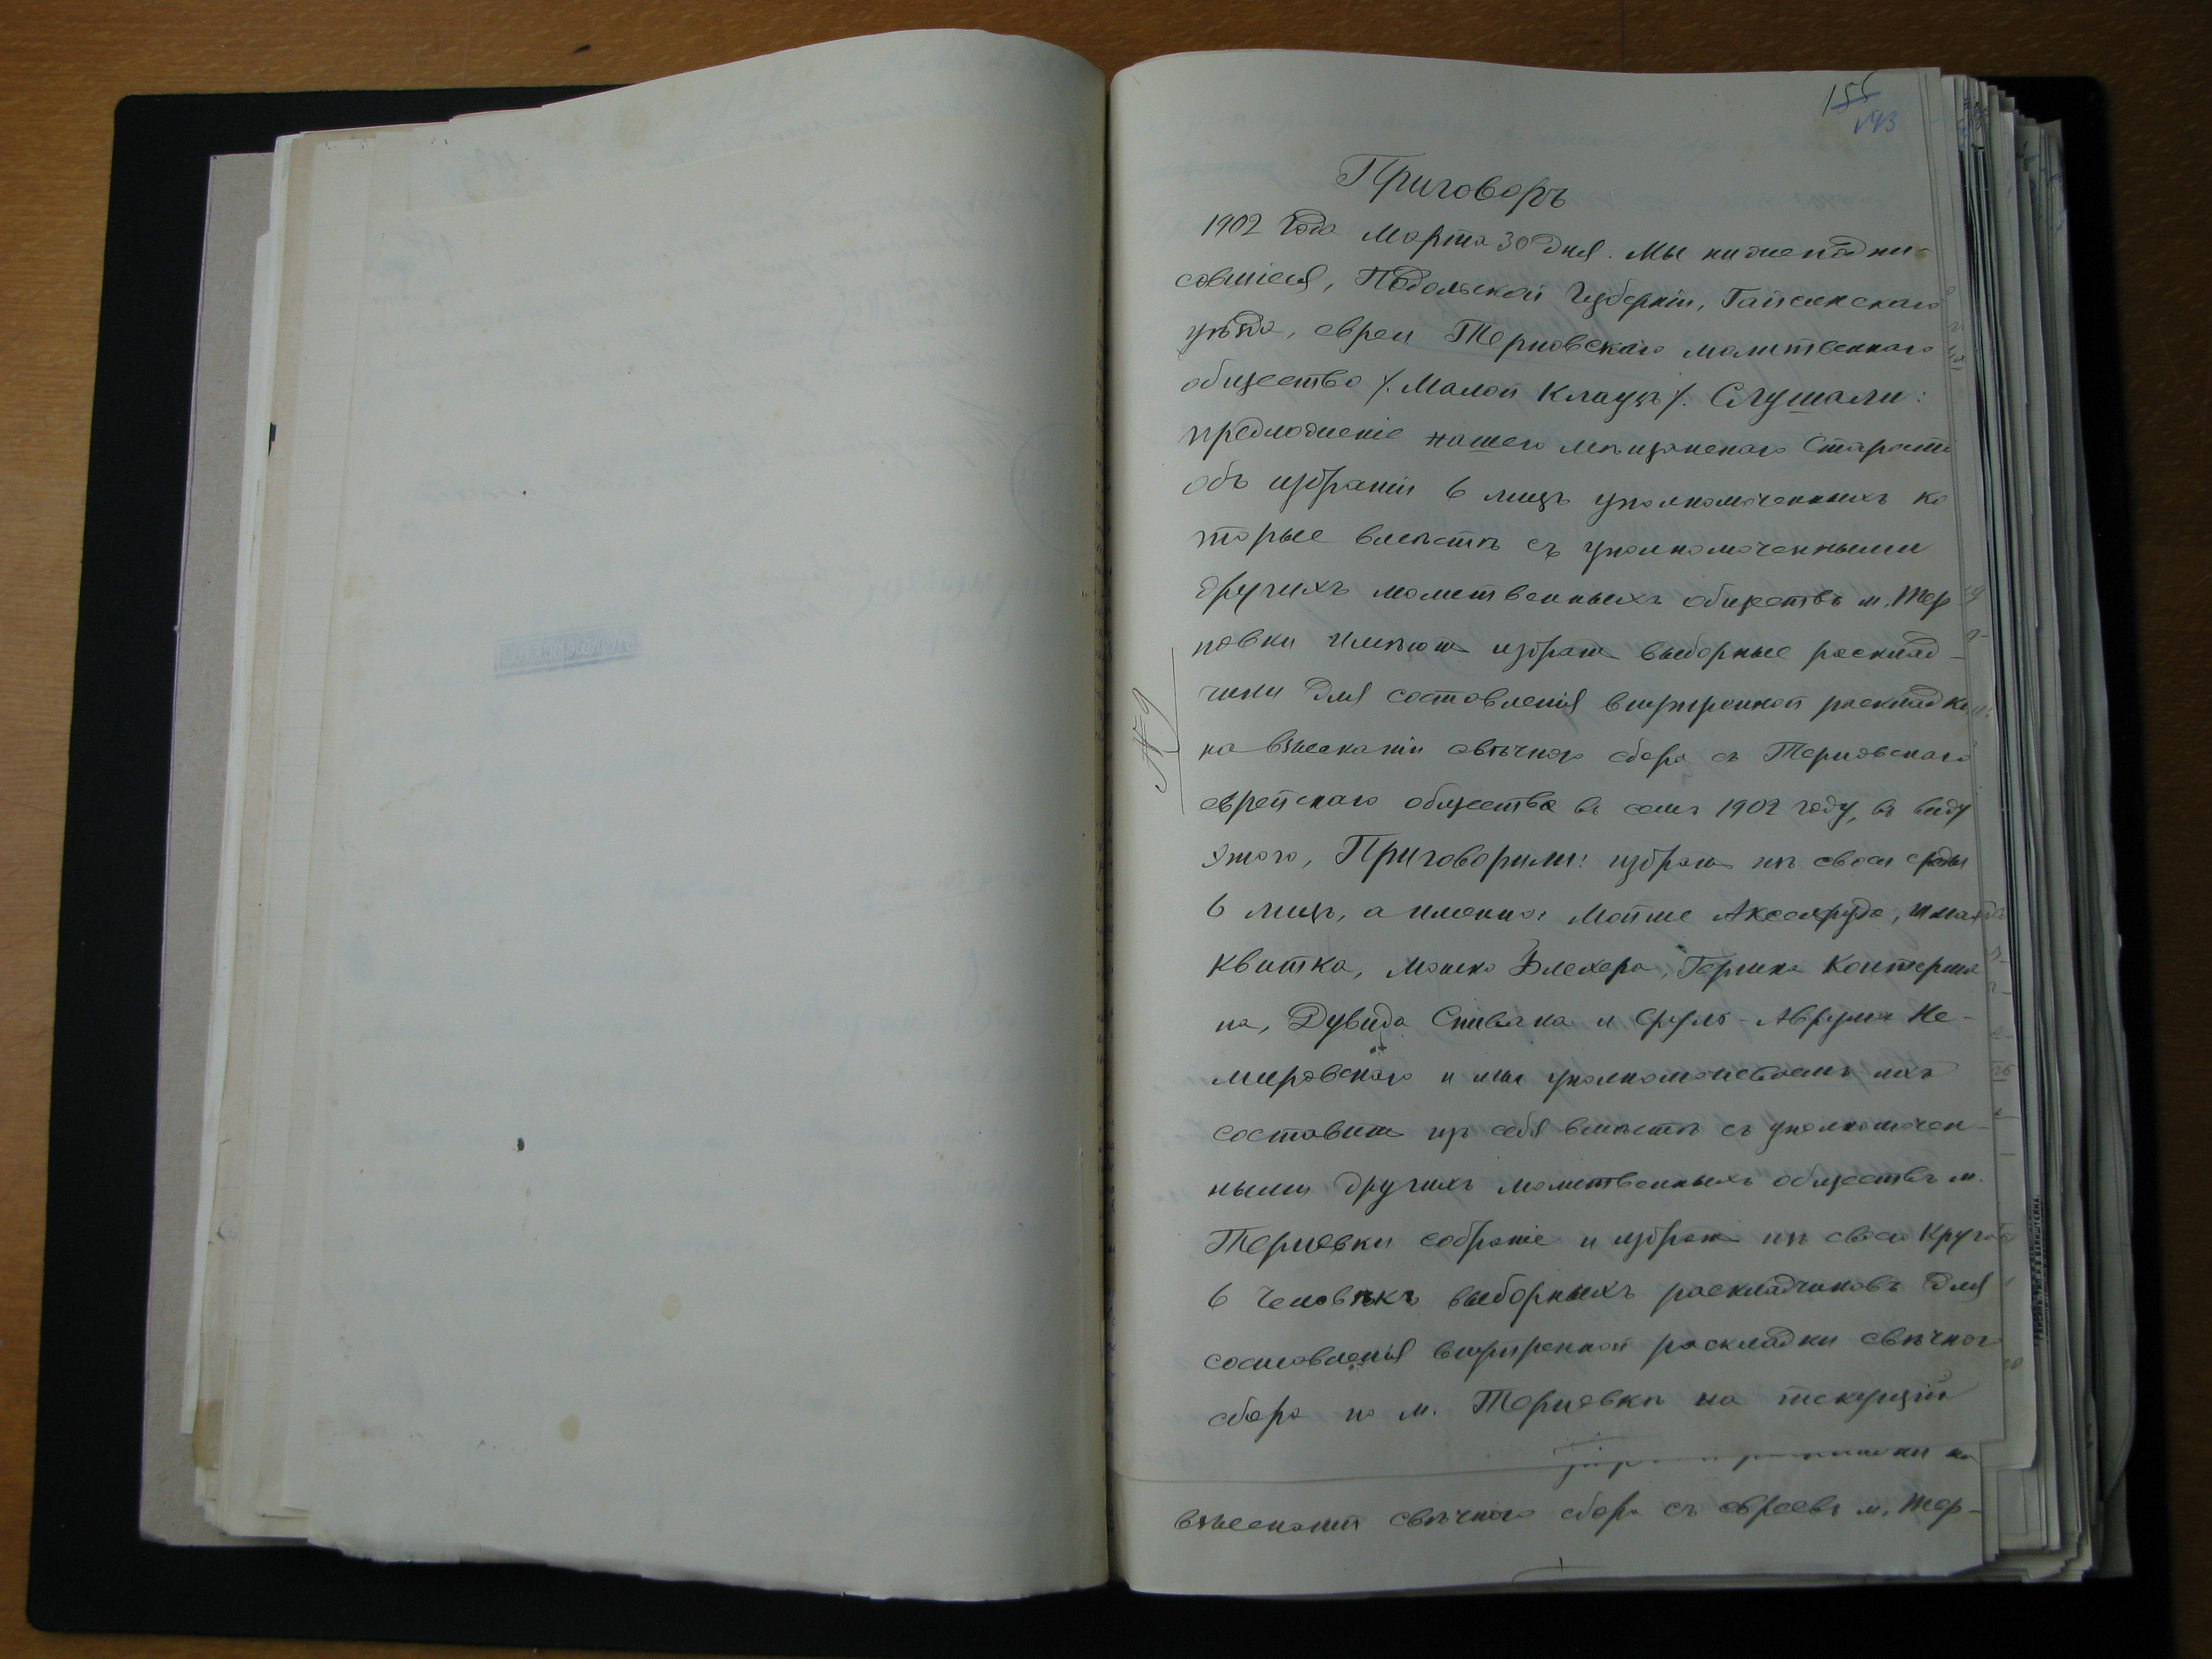 155
143
Приговоръ
1902 года Марта 30 дня. Мы нижеподпи-
савшіеся, Подольской Губерніи, Гайсинскаго
уѣзда, евреи Терновскаго молитвеннаго
общества /. Малой Клаузъ /. Слушали:
предложеніе нашего мѣщанскаго Старосты
объ избраніи 6 лицъ уполномоченныхъ ко
торые вмѣстѣ съ уполномоченными
другихъ молитвенныхъ обществъ м. Тер
новки имѣютъ избрать выборные расклад-
чики для составленія внутренной раскладки
на взысканіи свѣчного сбора съ Терновскаго
еврейскаго общества въ семъ 1902 году, въ виду
этого, Приговорили: избрать изъ своей среды
6 лицъ, а именно: Мойше Аксельруда,
Квитка, Мошко Блехера, Гершка Контерма
на, Дувида Спивака и Сруль-Аврума Не-
мировскаго и мы уполномочиваемъ ихъ
составить изъ себя вмѣстѣ съ уполномочен-
ными другихъ молитвенныхъ обществъ м.
Терновки собраніе и избрать изъ своего круга
6 человѣкъ выборныхъ раскладчиковъ для
составленія внутренной раскладки свѣчного
сбора по м. Терновкѣ на текущій
взысканіи свѣчного сбора съ евреевъ м. Тер-
№ 9